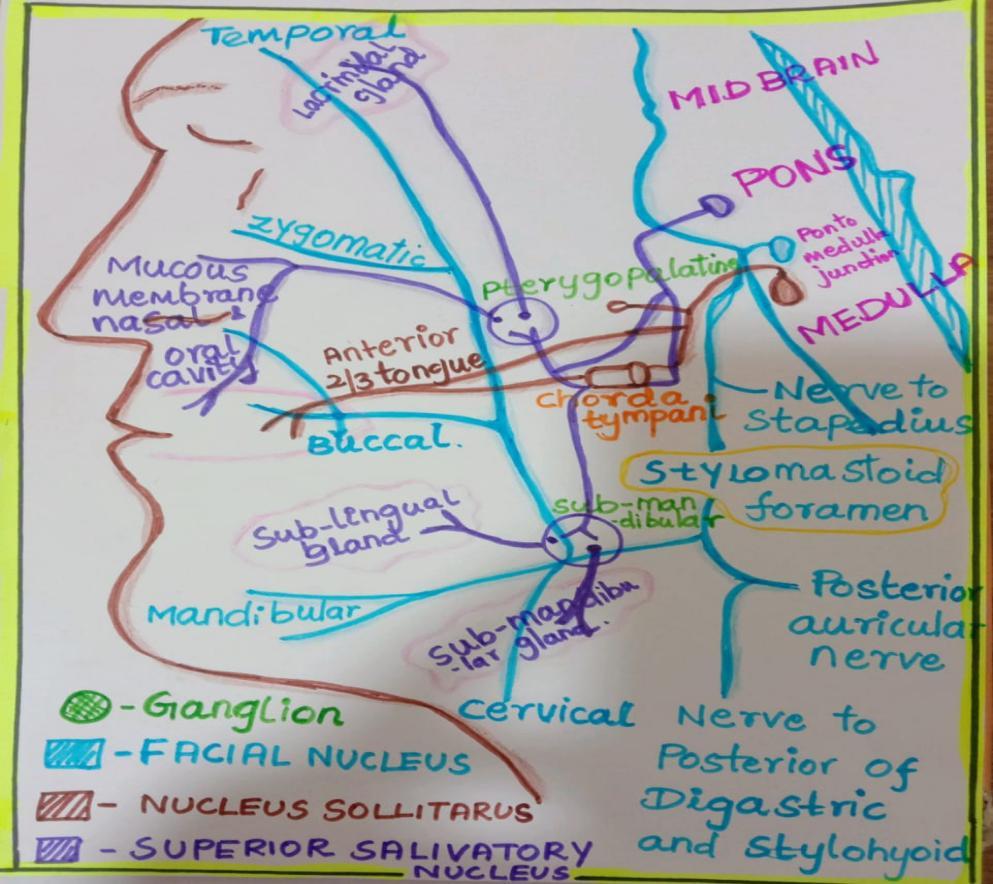 Temporal
Lacrimal
gland
MIDBRAIN
PONS
Ponto
medulla
junction
MEDULLA
zygomatic
Pterygopalatine
Mucous
Membrane
nasal &
oral
cavity
Anterior
2/3 tongue
chorda
tympani
Nerve to
Stapedius
Buccal.
Stylomastoid
foramen
Sub-lingual
gland
sub-man
-dibular
Mandibular
Sub-mandibu
-lar gland.
Posterior
auricular
nerve
Cervical
Nerve to
Posterior of
Digastric
and Stylohyoid
- Ganglion
- FACIAL NUCLEUS
- NUCLEUS SOLLITARUS
- SUPERIOR SALIVATORY
NUCLEUS